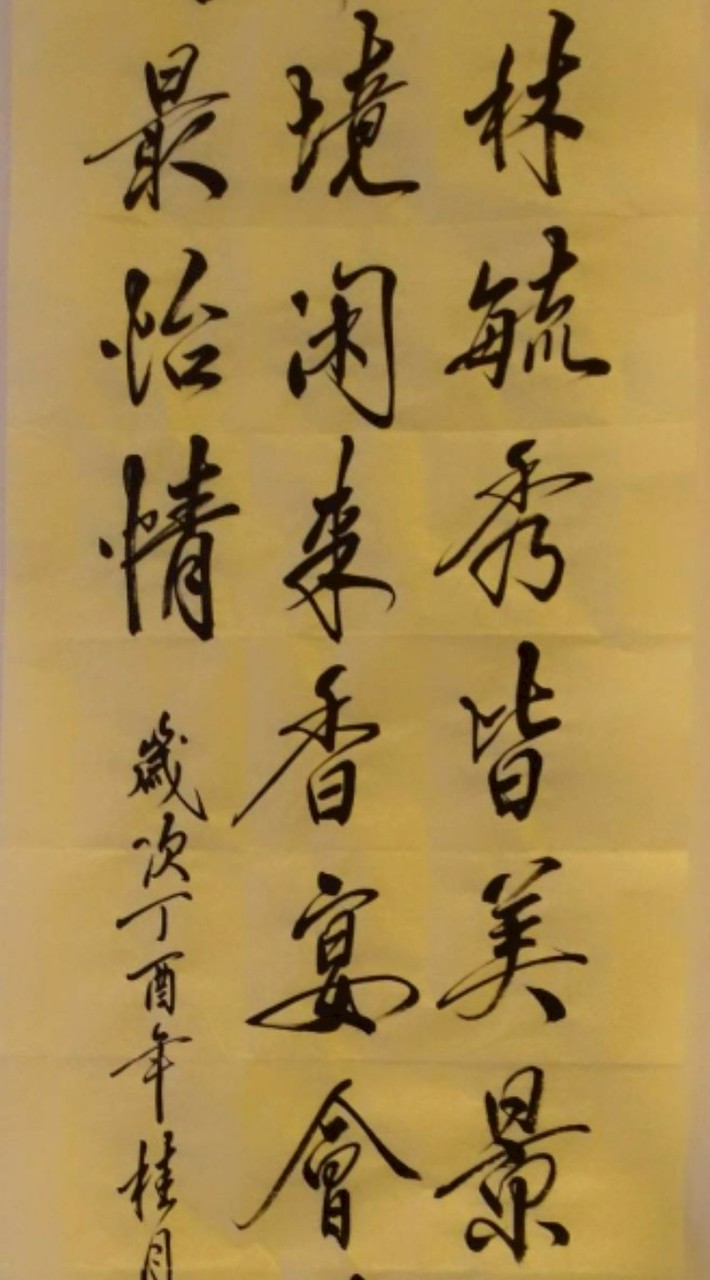 林毓秀皆美景
境闲来香宴會
最怡情
歲次丁酉年桂月